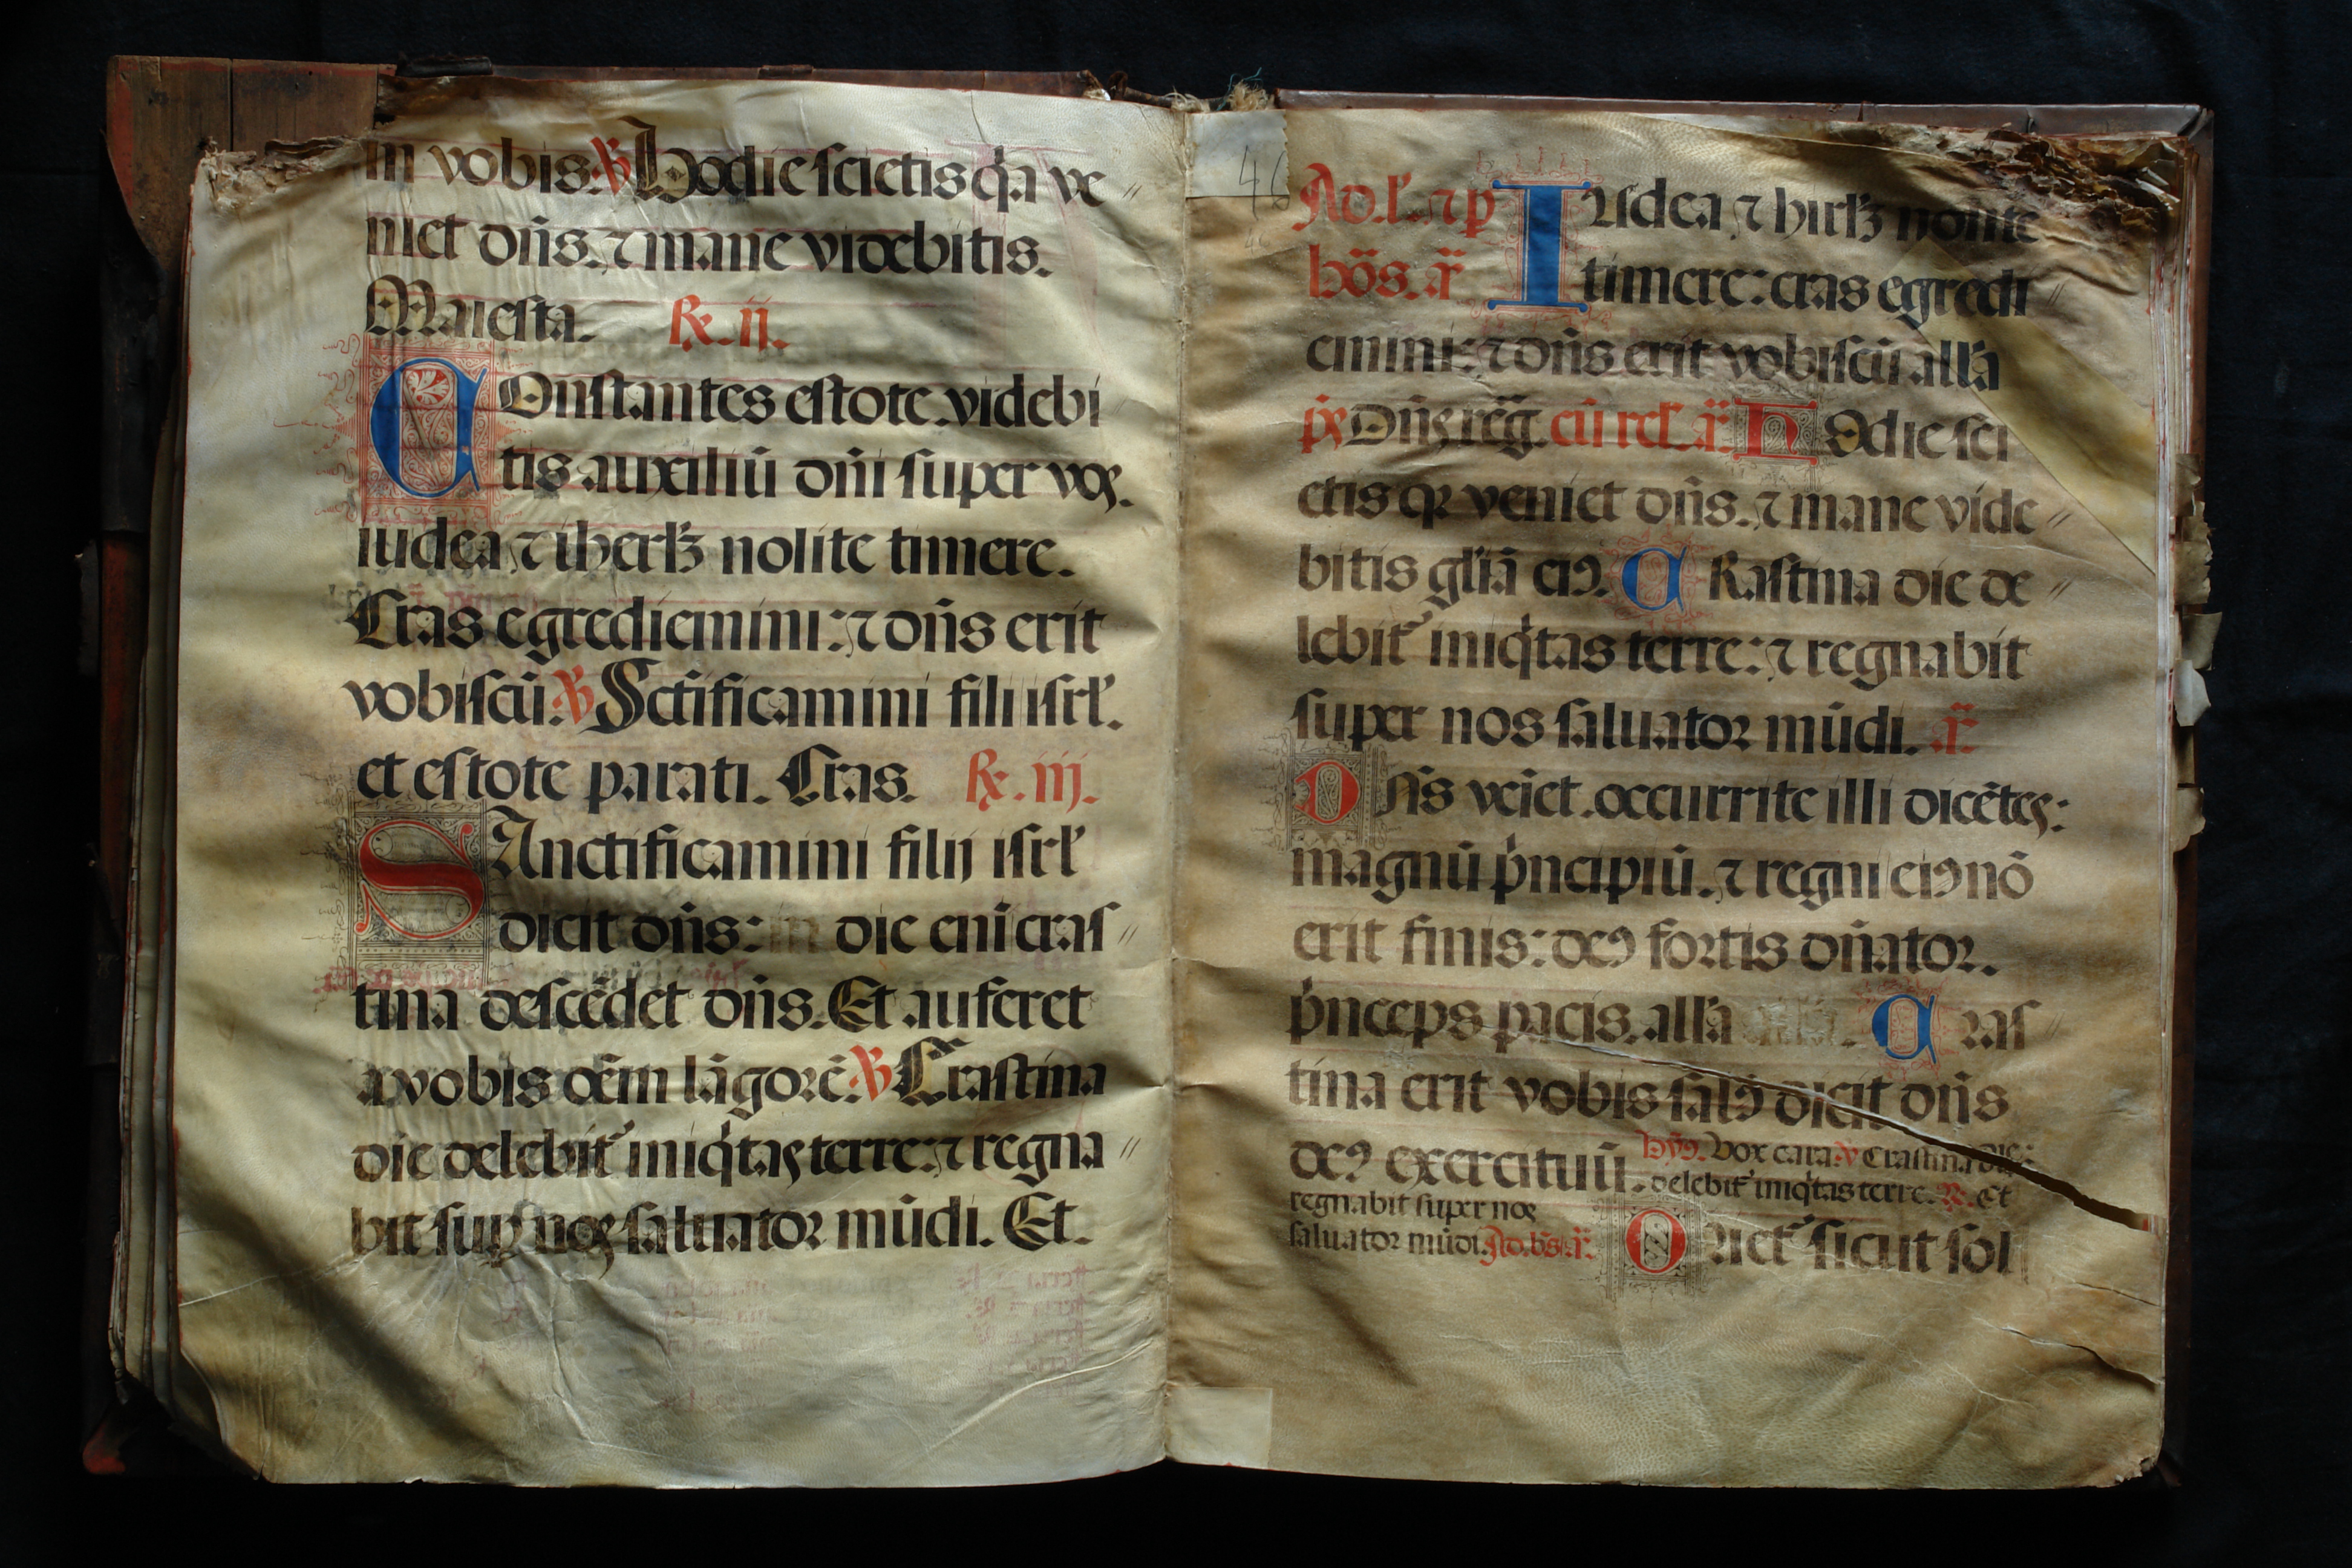 in vobis. ℣ Hodie scietis q̇a ve〃
niet dn̄s. ⁊ mane videbitis.
Maiesta. ℞. ij.
COnstantes estote videbi
tis auxiliū dn̄i super vos.
iudea ⁊ iherlꝫ nolite timere.
Cras egrediemini: ⁊ dn̄s erit
vobiscū. ℣ Sctificamini fili isrl̓.
et estote parati. Cras. ℞. iij.
SAnctificamini filij isrl̓
dicit dn̄s: in die eni cras〃
tina descēdet dn̄s. Et auferet
a vobis oēm lāgorē. ℣ Crastina
die delebit᷑ iniq̇tas terre: ⁊ regna〃
bit suꝑ nos saluator mūdi. Et.
46
Ad. l̓. ⁊ p IUdea ⁊ hirlꝫ nolite
hōs. a᷑ timere: cras egredi〃
emini: ⁊ dn̄s erit vobiscū all̓a
p̓s Dn̄s rēg. cū rel̓. a᷑ HOdie sci
etis qꝛ veniet dn̄s. ⁊ mane vide〃
bitis gl̓iā eiꝰ. CRastina die de〃
lebit᷑ iniq̇tas terre: ⁊ regnabit
super nos saluator mūdi. a᷑
DN̄s veīet. occurrite illi dicētes:
magnū p̓ncipiū. ⁊ regni eiꝰ nō
erit finis: deꝰ fortis dn̄ator.
p̓nceps pacis. all̓a CRas〃
tina erit vobis salꝰ dicit dn̄s
deꝰ exercituū. hy̓ꝰ. Vox cara. ℣ Crastina die:
delebit᷑ iniq̇tas terre. ℟. Et
regnabit super nos
saluator mūdi. Ad. bs̄. a᷑. ORiet᷑ sicut sol